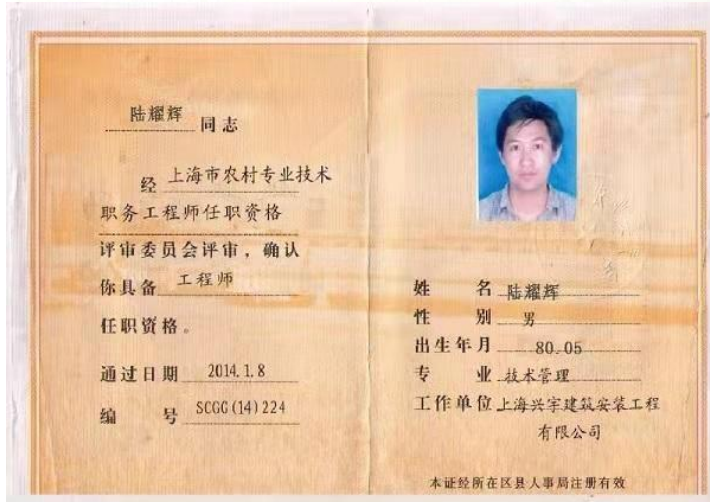 陆耀辉 同志
经 上海市农村专业技术
职务工程师任职资格
评审委员会评审，确认
你具备 工程师
任职资格。
通过日期 2014.1.8
编 号 SCGG(14)224
姓 名 陆耀辉
性 别 男
出生年月 80.05
专 业 技术管理
工作单位 上海兴宇建筑安装工程
有限公司
本证经所在区县人事局注册有效